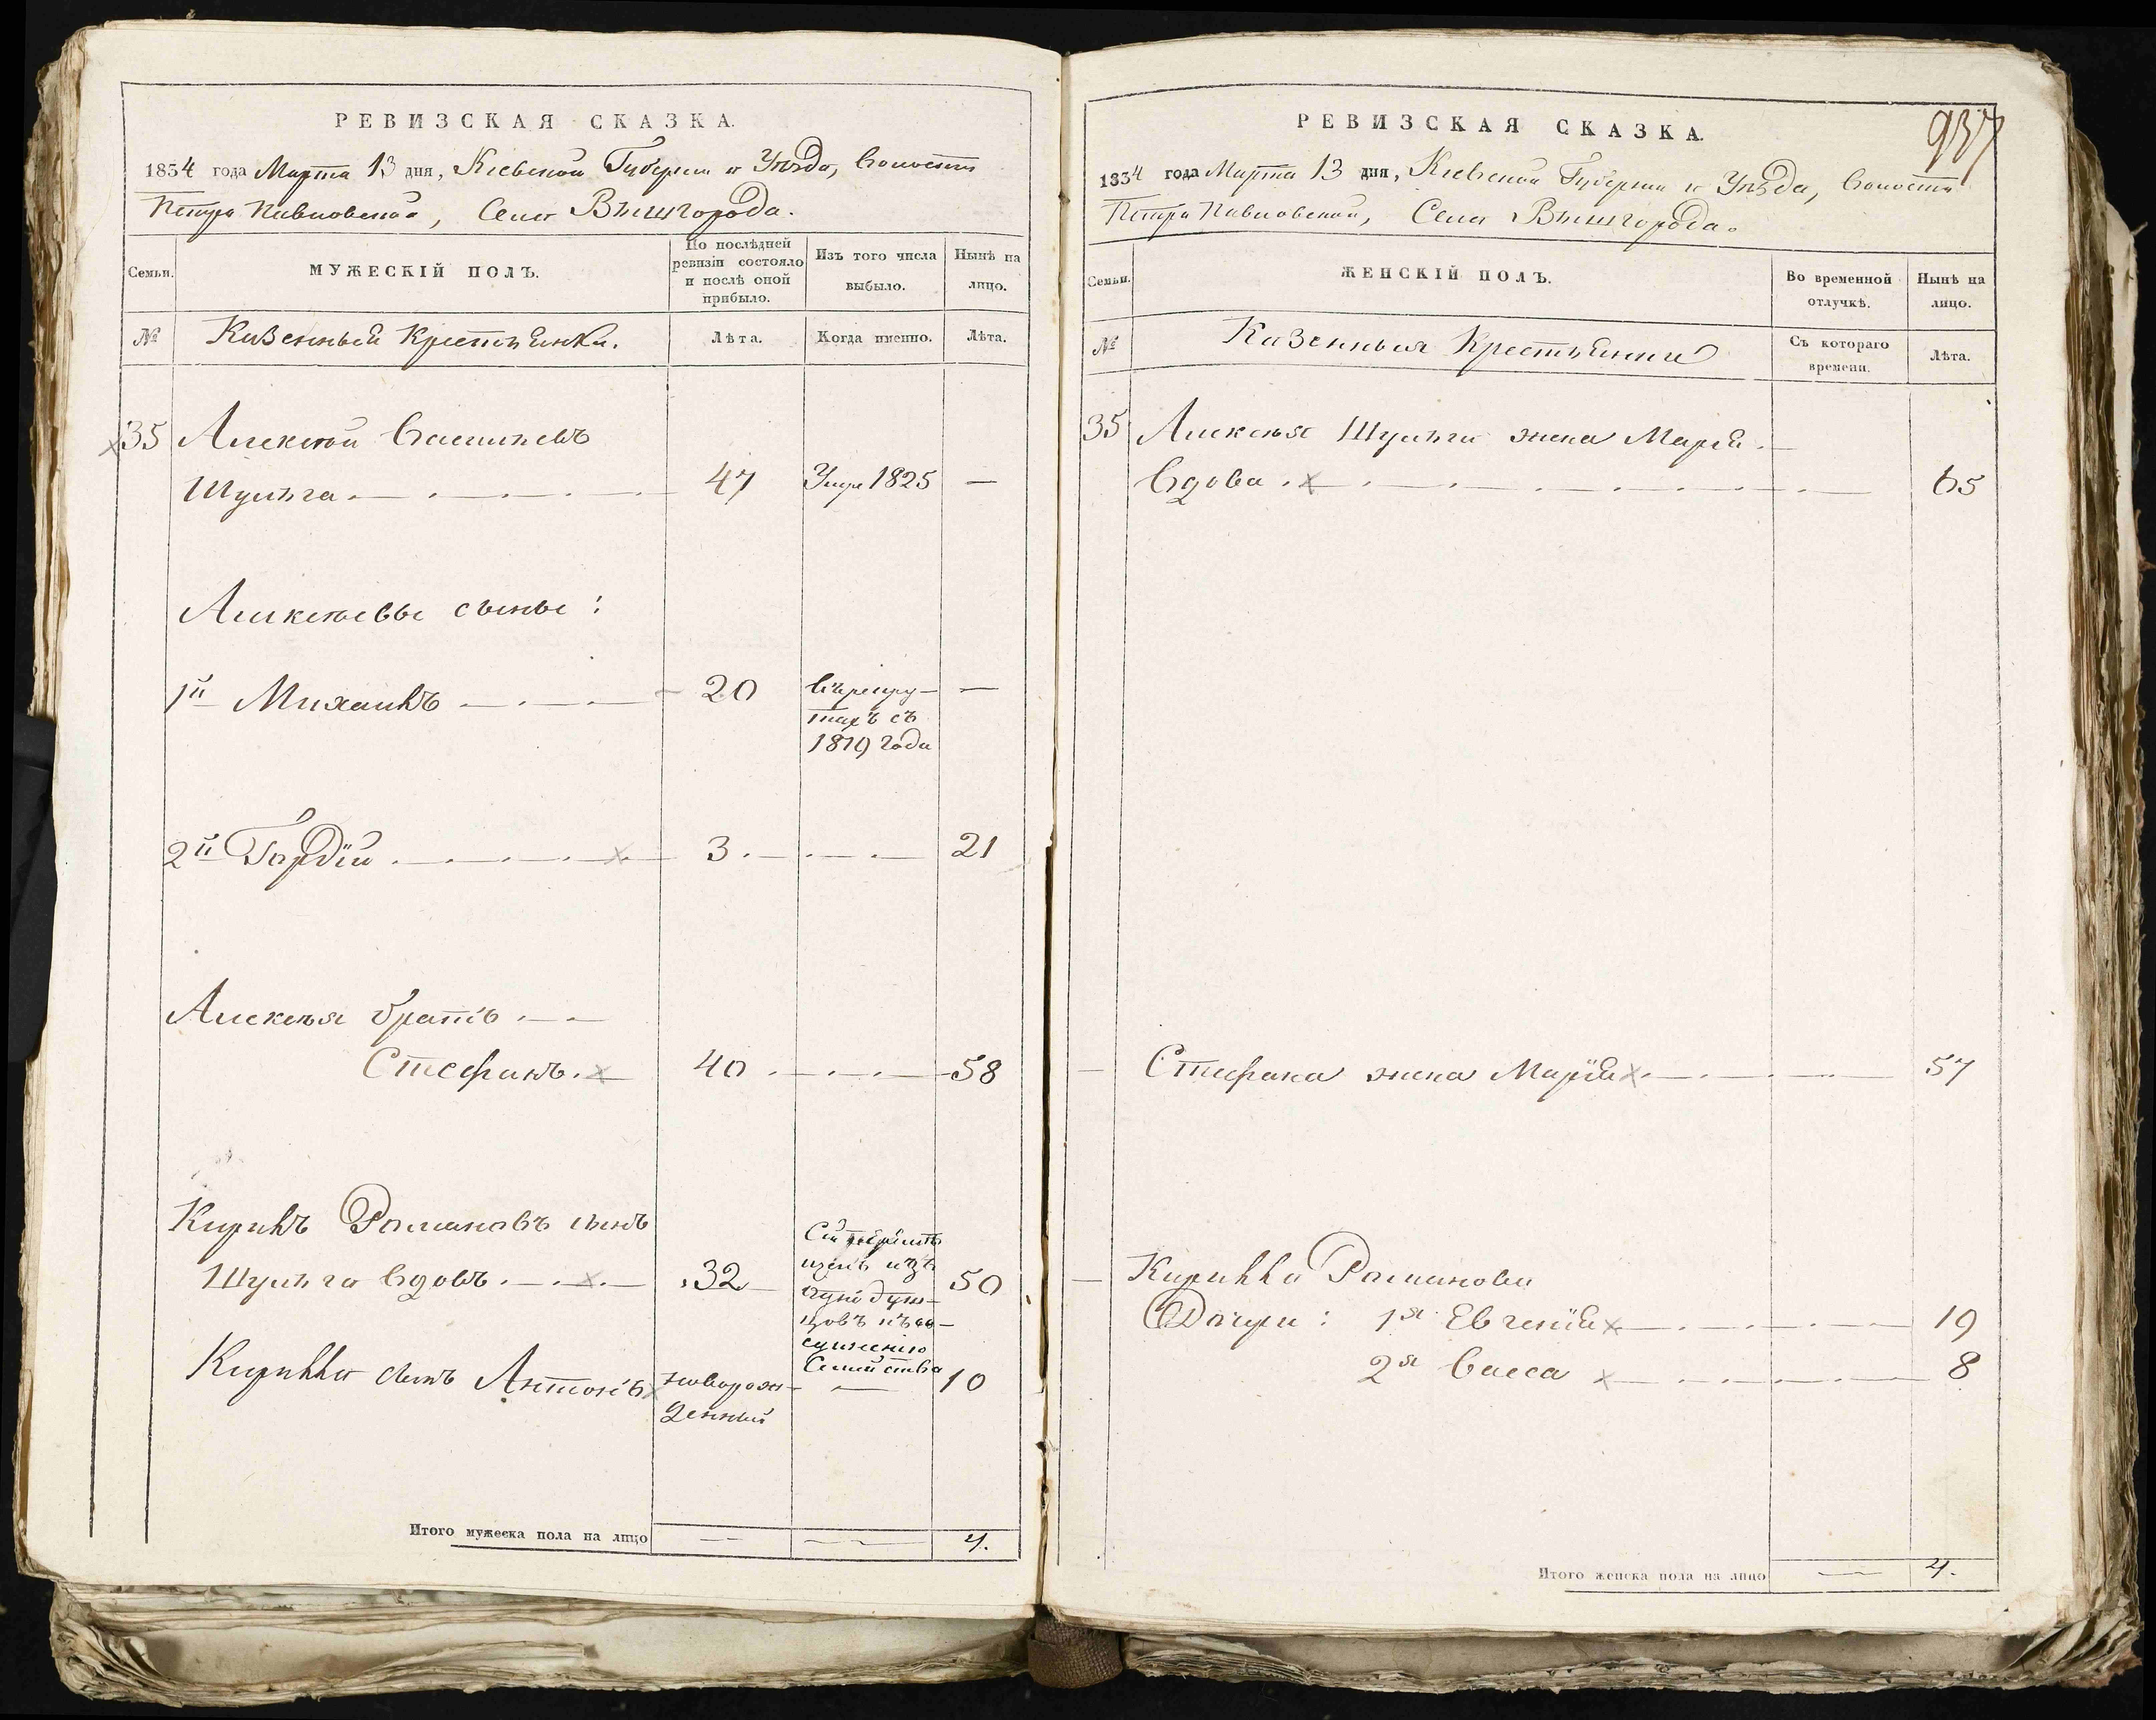 РЕВИЗСКАЯ СКАЗКА.
1834 года Марта 13 дня, Кіевской Губерніи и Уѣзда, Волости
Петро Павловской, Села Вышгорода.
Семьи.
МУЖЕСКІЙ ПОЛЪ.
По послѣдней ревизіи состояло и послѣ оной прибыло.
Изъ того числа выбыло.
Нынѣ на лицо.
№
Казенныи Крестьянѣ.
Лѣта.
Когда именно.
Лѣта.
35 Алексѣй Васильевъ
Шуляга 47 Умре 1825 —
Алексѣевы сыны:
1й Михаилъ 20 Въ рекру-
тахъ съ
1819 года
—
2й Гордій 3 21
Алексѣя братъ
Стефанъ 40 58
Кирилъ Романовъ сынъ
Шуляга вдовъ 32 50
Семейства
Кирилла сынъ Антонъ новорож-
денный
— 10
Итого мужеска пола на лицо — — 4.
937
РЕВИЗСКАЯ СКАЗКА.
1834 года Марта 13 дня, Кіевской Губерніи и Уѣзда, Волости
Петро Павловской, Села Вышгорода.
Семьи.
ЖЕНСКІЙ ПОЛЪ.
Во временной отлучкѣ.
Нынѣ на лицо.
№
Казенныя Крестьянки
Съ котораго времени.
Лѣта.
35 Алексѣя Шуляги жена Марія
вдова 65
Стефана жена Марія 57
Кирилла Романова
Дочери: 1я Евгенія 19
2я Васса 8
Итого женска пола на лицо — 4.